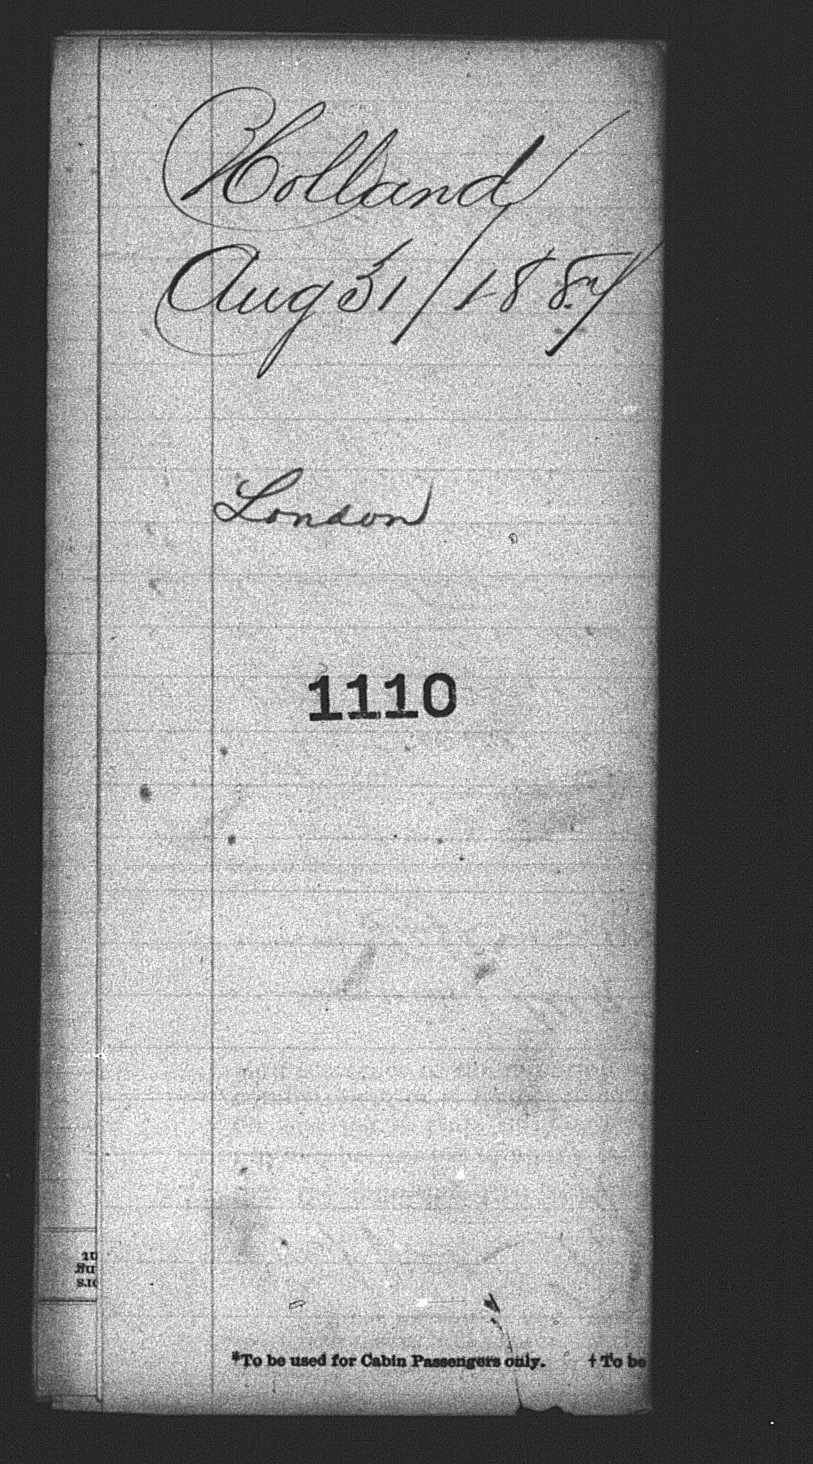 Holland
Aug 31/1887
London
1110
*To be used for Cabin Passengers only. † To be